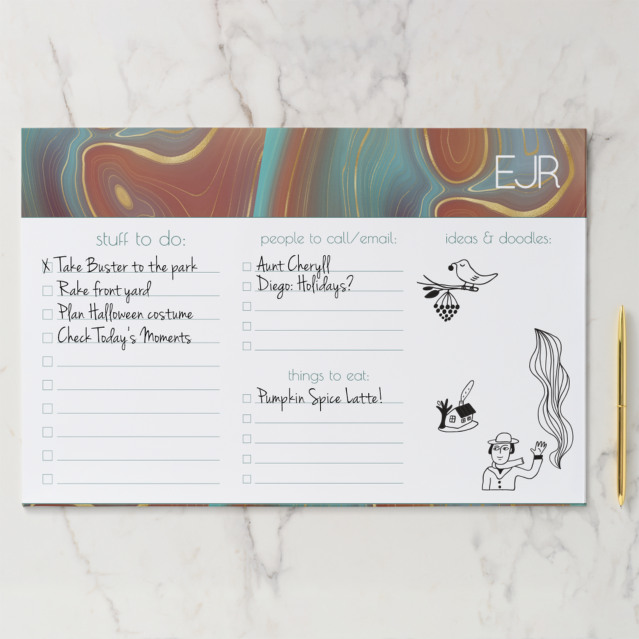 EJR
stuff to do:
X Take Buster to the park
Rake front yard
Plan Halloween costume
Check Today's Moments
people to call/email:
Aunt Cheryll
Diego: Holidays?
things to eat:
Pumpkin Spice Latte!
ideas & doodles: